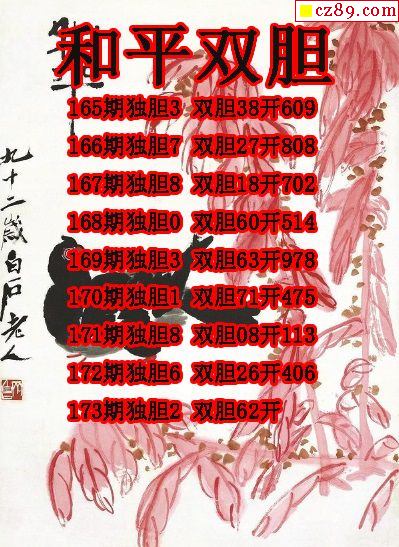 cz89.com
和平双胆
165期独胆3 双胆38开609
166期独胆7 双胆27开808
167期独胆8 双胆18开702
168期独胆0 双胆60开514
169期独胆3 双胆63开978
170期独胆1 双胆71开475
171期独胆8 双胆08开113
172期独胆6 双胆26开406
173期独胆2 双胆62开
九十二岁白石老人